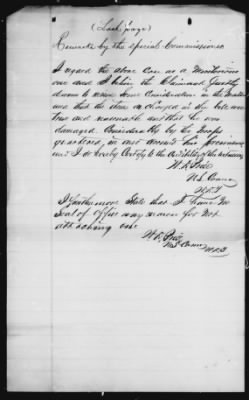 (Last page)
Remarks by the Special Commissioner
I regard the above Case as a Meritorious
one and I believe the Claimant justly
due to some Consideration in the matter
and that the items as charged in by bill are
true and reasonable and that he was
damaged Considerably by the troops
quartered in and around his premises
and I do hereby Certify to the credibility of the witnesses
I furthermore State that I have no
Seal of Office any reason for not
attaching one